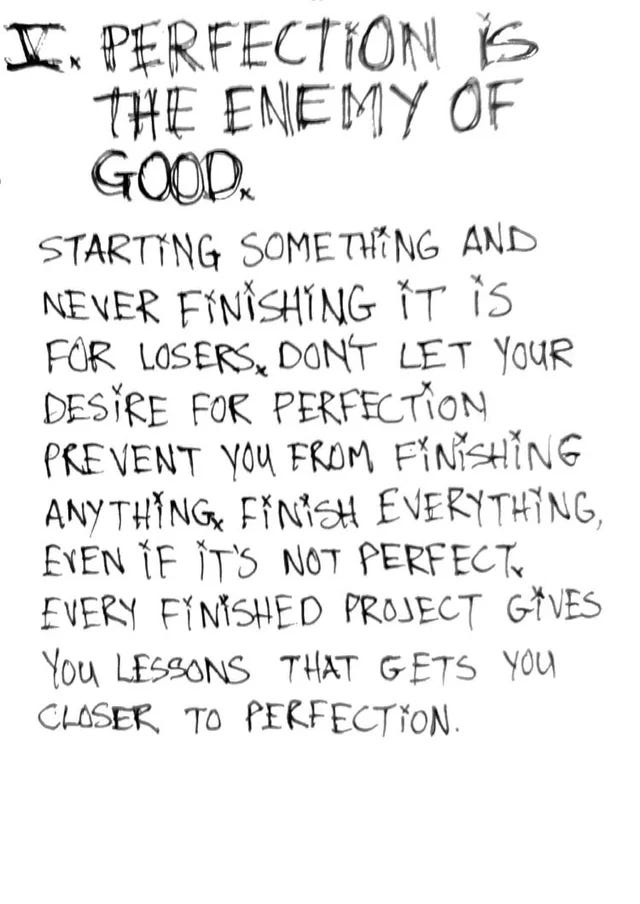 V. PERFECTION IS
THE ENEMY OF
GOOD.
STARTING SOMETHING AND
NEVER FINISHING IT IS
FOR LOSERS. DON'T LET YOUR
DESIRE FOR PERFECTION
PREVENT YOU FROM FINISHING
ANYTHING. FINISH EVERYTHING,
EVEN IF IT'S NOT PERFECT.
EVERY FINISHED PROJECT GIVES
YOU LESSONS THAT GETS YOU
CLOSER TO PERFECTION.